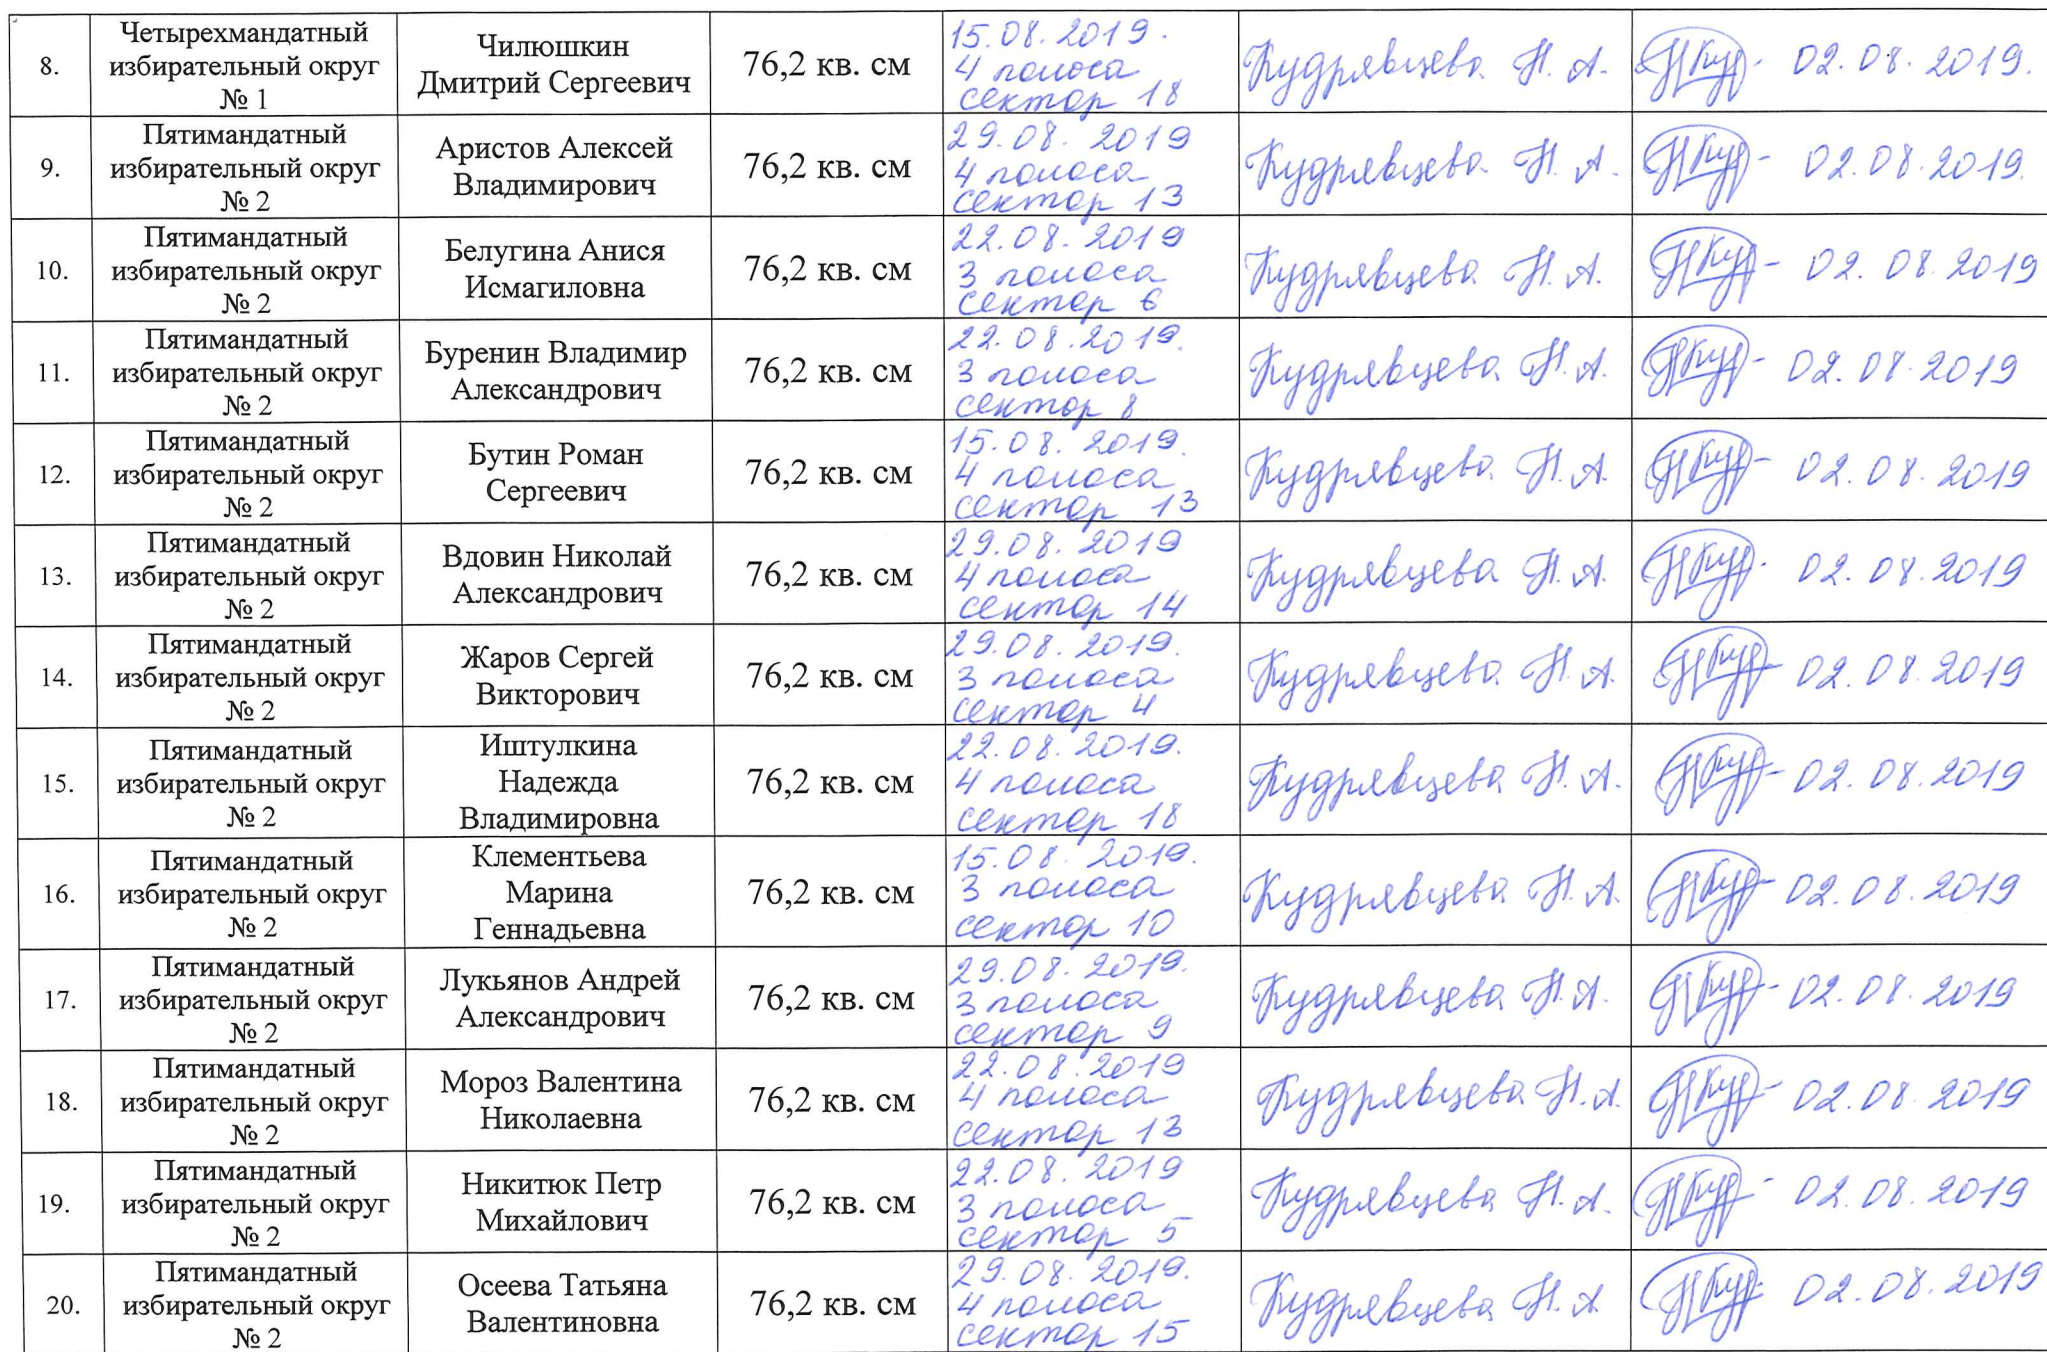 8.
Четырехмандатный
избирательный округ
№ 1
Чилюшкин
Дмитрий Сергеевич
76,2 кв. см
15.08.2019.
4 полоса
сектор 18
Кудрявцева Н. А.
02.08.2019.
9.
Пятимандатный
избирательный округ
№ 2
Аристов Алексей
Владимирович
76,2 кв. см
29.08.2019
4 полоса
сектор 13
Кудрявцева Н. А.
02.08.2019.
10.
Пятимандатный
избирательный округ
№ 2
Белугина Анися
Исмагиловна
76,2 кв. см
22.08.2019
3 полоса
сектор 6
Кудрявцева Н. А.
02.08.2019
11.
Пятимандатный
избирательный округ
№ 2
Буренин Владимир
Александрович
76,2 кв. см
22.08.2019.
3 полоса
сектор 8
Кудрявцева Н. А.
02.08.2019
12.
Пятимандатный
избирательный округ
№ 2
Бутин Роман
Сергеевич
76,2 кв. см
15.08.2019.
4 полоса
сектор 13
Кудрявцева Н. А.
02.08.2019
13.
Пятимандатный
избирательный округ
№ 2
Вдовин Николай
Александрович
76,2 кв. см
29.08.2019
4 полоса
сектор 14
Кудрявцева Н. А.
02.08.2019
14.
Пятимандатный
избирательный округ
№ 2
Жаров Сергей
Викторович
76,2 кв. см
29.08.2019.
3 полоса
сектор 4
Кудрявцева Н. А.
02.08.2019
15.
Пятимандатный
избирательный округ
№ 2
Иштулкина
Надежда
Владимировна
76,2 кв. см
22.08.2019.
4 полоса
сектор 18
Кудрявцева Н. А.
02.08.2019
16.
Пятимандатный
избирательный округ
№ 2
Клементьева
Марина
Геннадьевна
76,2 кв. см
15.08.2019.
3 полоса
сектор 10
Кудрявцева Н. А.
02.08.2019
17.
Пятимандатный
избирательный округ
№ 2
Лукьянов Андрей
Александрович
76,2 кв. см
29.08.2019.
3 полоса
сектор 9
Кудрявцева Н. А.
02.08.2019
18.
Пятимандатный
избирательный округ
№ 2
Мороз Валентина
Николаевна
76,2 кв. см
22.08.2019
4 полоса
сектор 13
Кудрявцева Н. А.
02.08.2019
19.
Пятимандатный
избирательный округ
№ 2
Никитюк Петр
Михайлович
76,2 кв. см
22.08.2019
3 полоса
сектор 5
Кудрявцева Н. А.
02.08.2019
20.
Пятимандатный
избирательный округ
№ 2
Осеева Татьяна
Валентиновна
76,2 кв. см
29.08.2019.
4 полоса
сектор 15
Кудрявцева Н. А
02.08.2019